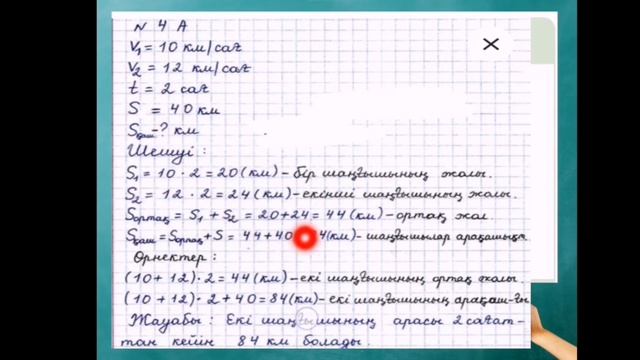 N 4 A
V₁ = 10 км/сағ
V₂ = 12 км/сағ
t = 2 сағ
S = 40 км
Sқаш - ? км
Шешуі :
S₁ = 10 · 2 = 20 (км) - бір шаңғышының жолы.
S₂ = 12 · 2 = 24 (км) - екінші шаңғышының жолы.
Sортақ = S₁ + S₂ = 20+24 = 44 (км) - ортақ жол.
Sқаш = Sортақ + S = 44+40 4(км) - шаңғышылар арақашық.
Өрнектер :
(10 + 12) · 2 = 44(км) - екі шаңғышының ортақ жолы.
(10 + 12) · 2 + 40 = 84(км) - екі шаңғышының арақаш-ғы
Жауабы : Екі шаңғышының арасы 2 сағат-
тан кейін 84 км болады.